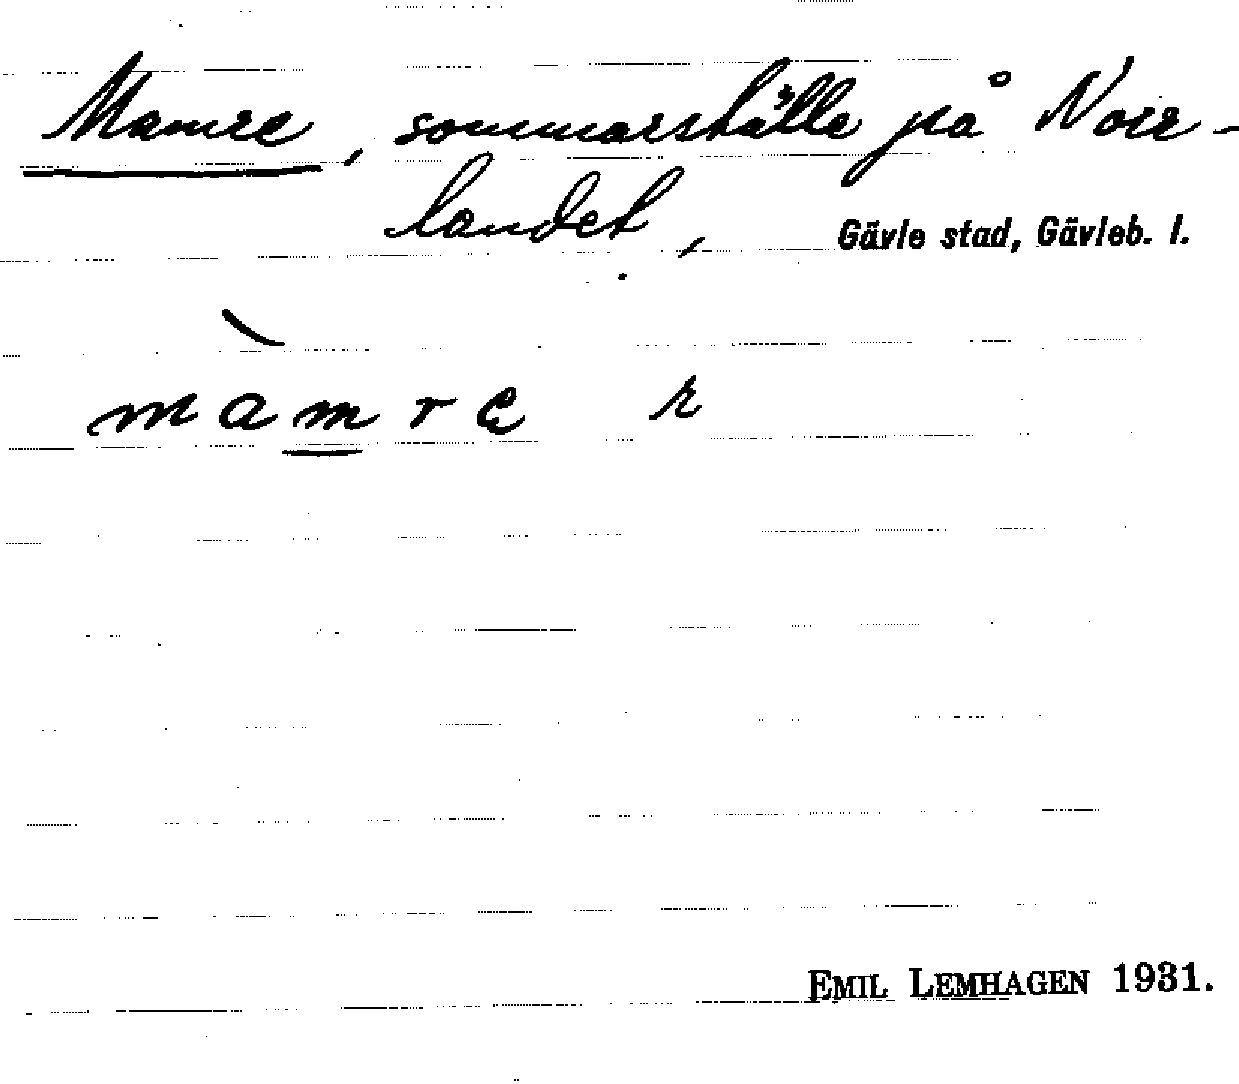 Mamre, sommarställe på Norr-
landet, Gävle stad, Gävleb. l.
màmre r
EMIL LEMHAGEN 1931.